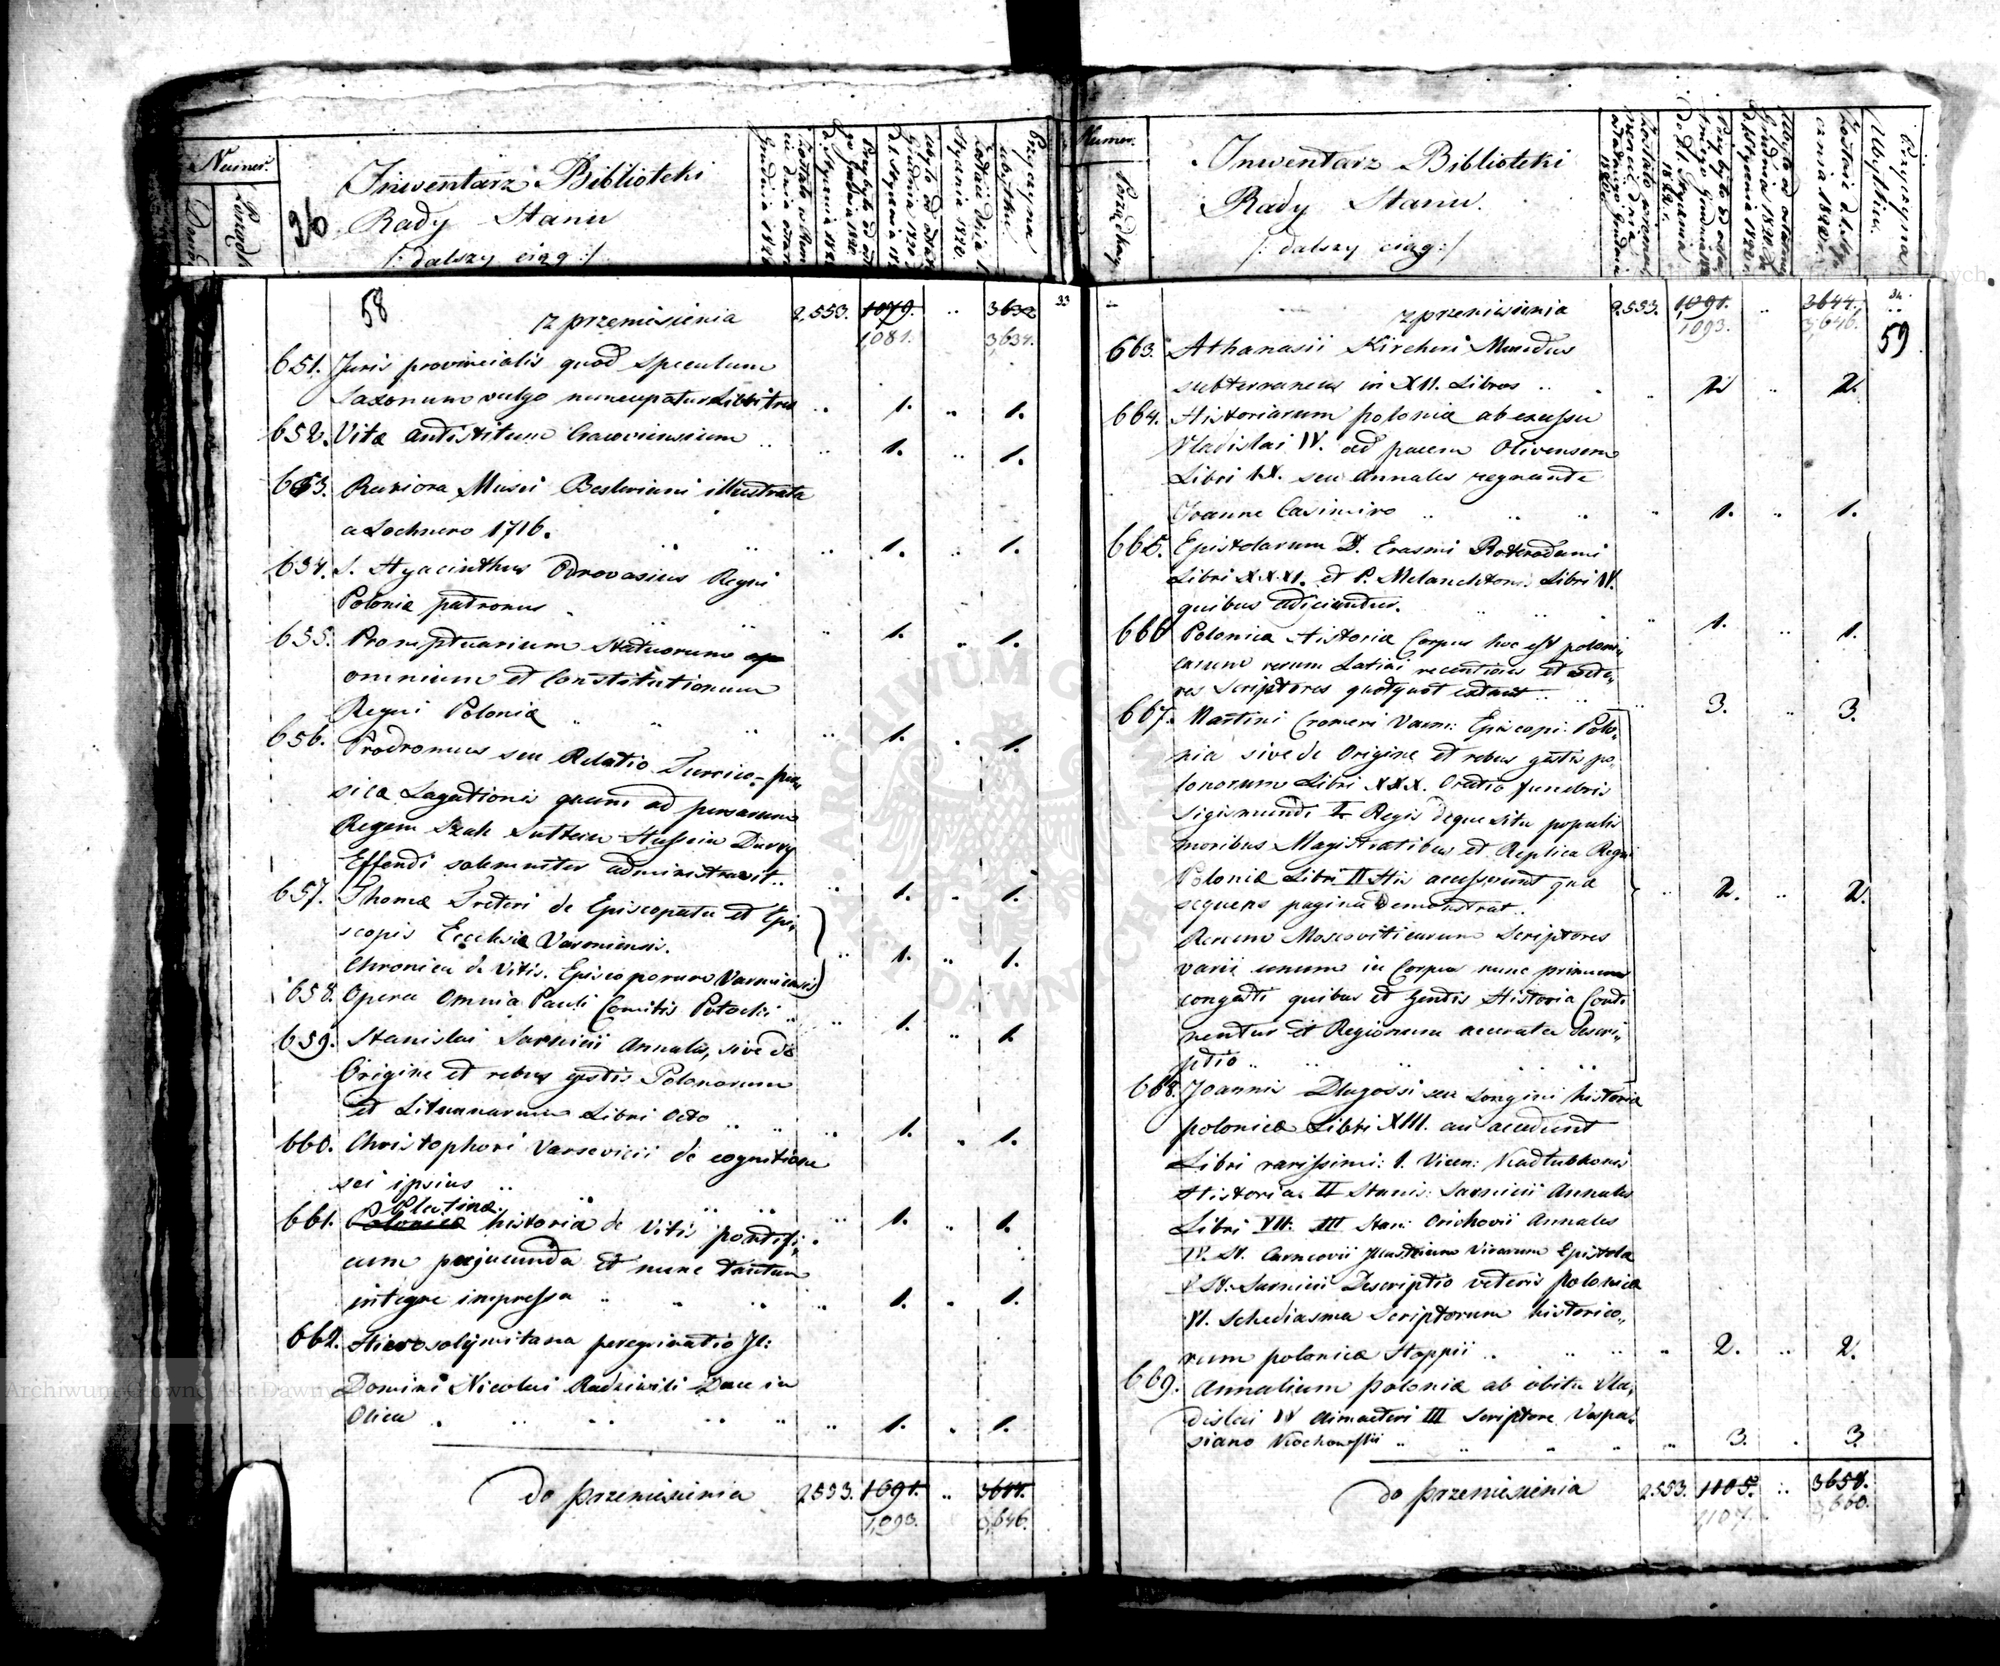 Numer.
Porządk
26
Inwentarz Biblioteki
Rady Stanu
/: dalszy ciąg :/
Przyczyna
ubytku
58
z przeniesienia 2,553. 1079. .. 3632 33
1,081. 3,634.
651. Juris provincialis quod speculum
Saxonum vulgo nuncupatur Libri tres .. 1. .. 1.
652. Vitæ antistitum Cracoviensium .. .. 1. .. 1.
653. Rariora Musei Besleriani illustrata
a Lochnero 1716. .. .. .. 1. .. 1.
654. S. Hyacinthus Odrovasius Regni
Poloniæ patronus .. .. .. 1. .. 1.
655. Promptuarium Statuorum
omnium et Constitutionum
Regni Poloniæ .. .. .. 1. . 1.
656. Prodromus seu Relatio Turcico-per
sicæ Lagationis quam ad persarum
Regem Szah Sultan Hussein Durry
Effendi solemniter administravit .. .. 1. . 1.
657. Thomæ Treteri de Episcopatu et Epi,
scopis Ecclesiæ Varmiensis. .. 1. .. 1.
Chronica de Vitis. Episcoporum Varmiensis
658. Opera Omnia Pauli Comitis Potocki .. .. 1. .. 1.
659. Stanislai Sarnicii Annales, sive de
Origine et rebus gestis Polonorum
et Lituanarum Libri Octo .. .. .. 1. . 1.
660. Christophori Varsevicii de cognitione
sei ipsius .. .. .. .. 1. .. 1.
Platinæ.
661. Polonicæ historia de Vitis pontifi,
cum perjucunda et nunc tantum
integre impressa .. .. .. .. 1. . 1.
662. Hierosolymitana peregrinatio Jl:
Domini Nicolai Radziwili Duce in
Olica . .. .. .. .. .. 1. . 1.
do przeniesienia 2,553. 1091. .. 3644.
1,093. 3,646.
Numer.
Porządkowy
Inwentarz Biblioteki
Rady Stanu.
/: dalszy ciąg :/
Przyczyna
Ubytku.
z przeniesienia 2,553. 1,091. .. 3644. 34
1,093. 3,646.
59
663. Athanasii Kircheri Mundus
subterraneus in XII. Libros .. . .. 2 .. 2.
664. Historiarum poloniæ ab excessu
Vladislai IV. ad pacem Olivensem
Libri IX. seu Annales regnante
Joanne Casimiro .. .. .. .. 1. .. 1.
665. Epistolarum D. Erasmi Roterodami
Libri X.X.XI. et P. Melanchtoni: Libri IV.
quibus adiciuntur. .. .. .. .. 1. .. 1.
666 Polonicæ Historiæ Corpus hoc est poloni,
carum rerum Latini recentiores et vete,
res Scriptores quotquot extant .. .. .. 3. .. 3.
667. Martini Cromeri Varm: Episcopi: Polo,
nia sive de Origine et rebus gestis po,
lonorum Libri XXX. Oratio funebris
Sigismundi I. Regis deque situ populis
moribus Magistratibus et Replica Regni
Poloniæ Libri II His accesserunt quæ .. 2. .. 2.
sequens pagina demonstrat ..
Rerum Moscoviticarum Scriptores
varii unum in Corpus nunc primum
congesti quibus et Gentis Historia Conti
nentur et Regionum accurata descri,,
ptio .. .. .. . . ..
668. Joannis Dlugossi seu Longini historiæ
polonicæ Libri XIII. cui accedunt
Libri rarissimi: I. Vicen: Kadlubkonis
Historia. II Stanis: Sarnicii Annales
Libri VII: III Stan: Orichovii Annales
IV. St. Carncovii Illustrium Virorum Epistolæ
V St: Sarnicii Descriptio veteris polonicæ
VI. Schediasma Scriptorum historico,,
rum polonicæ Hoppii .. .. .. .. 2. .. 2.
669. Annalium poloniæ ab obitu Vla,
dislai IV Climacteri III Scriptore Vespa,
siano Kochowskii .. .. .. .. .. 3. . 3.
do przeniesienia 2553. 1105. .. 3658.
1,107. 3,660.